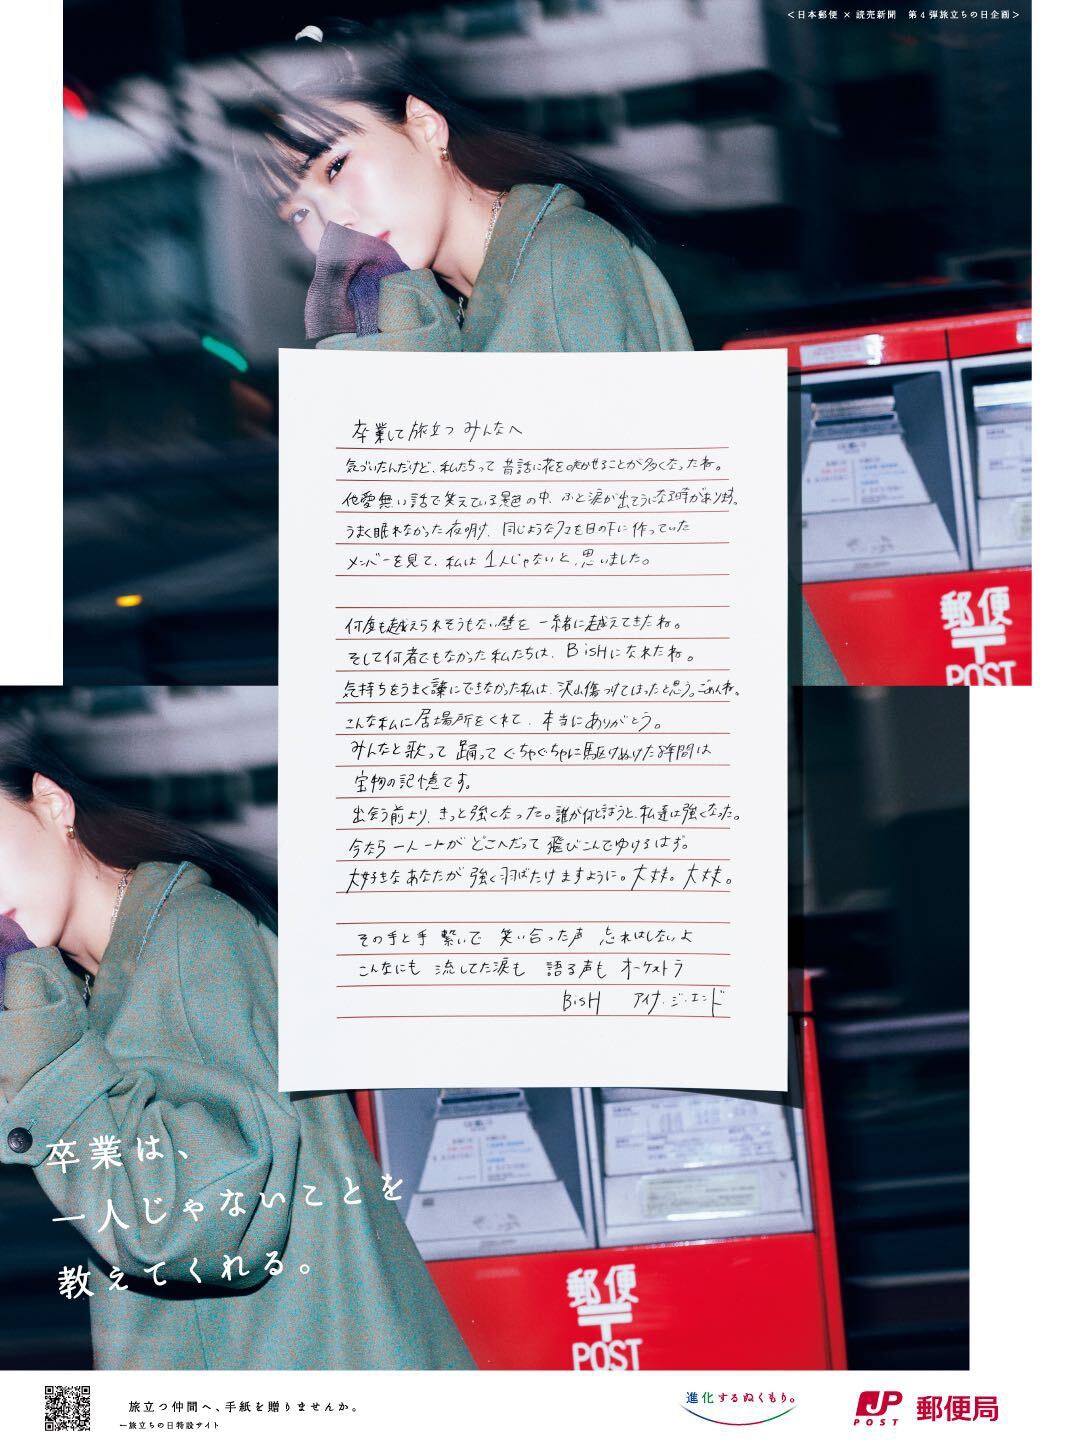 ＜日本郵便 × 読売新聞　第4弾旅立ちの日企画＞
卒業して旅立つ みんなへ
気づいたんだけど、私たちって 昔話に花を咲かせることが多くなったね。
他愛無い話で笑えている景色の中、ふと涙が出そうになる時があります。
うまく眠れなかった夜明け、同じようなクマを目の下に作っていた
メンバーを見て、私は1人じゃないと、思いました。
何度も越えられそうもない壁を 一緒に越えてきたね。
そして何者でもなかった私たちは、BiSHになれたね。
気持ちをうまく言葉にできなかった私は、沢山傷つけてしまったと思う。ごめんね。
こんな私に居場所をくれて、本当にありがとう。
みんなと歌って 踊って ぐちゃぐちゃに駆けぬけた8年間は
宝物の記憶です。
出会う前より、きっと強くなった。誰が何と言おうと、私達は強くなった。
今なら 一人一人が どこへだって 飛びこんでゆけるはず。
大好きな あなたが 強く羽ばたけますように。大丈夫。大丈夫。
その手と手 繋いで 笑い合った声 忘れはしないよ
こんなにも 流してた涙も 語る声も オーケストラ
BiSH アイナ・ジ・エンド
郵便
〒
POST
卒業は、
一人じゃないことを
教えてくれる。
郵便
〒
POST
旅立つ仲間へ、手紙を贈りませんか。
←旅立ちの日特設サイト
進化するぬくもり。
JP
POST
郵便局